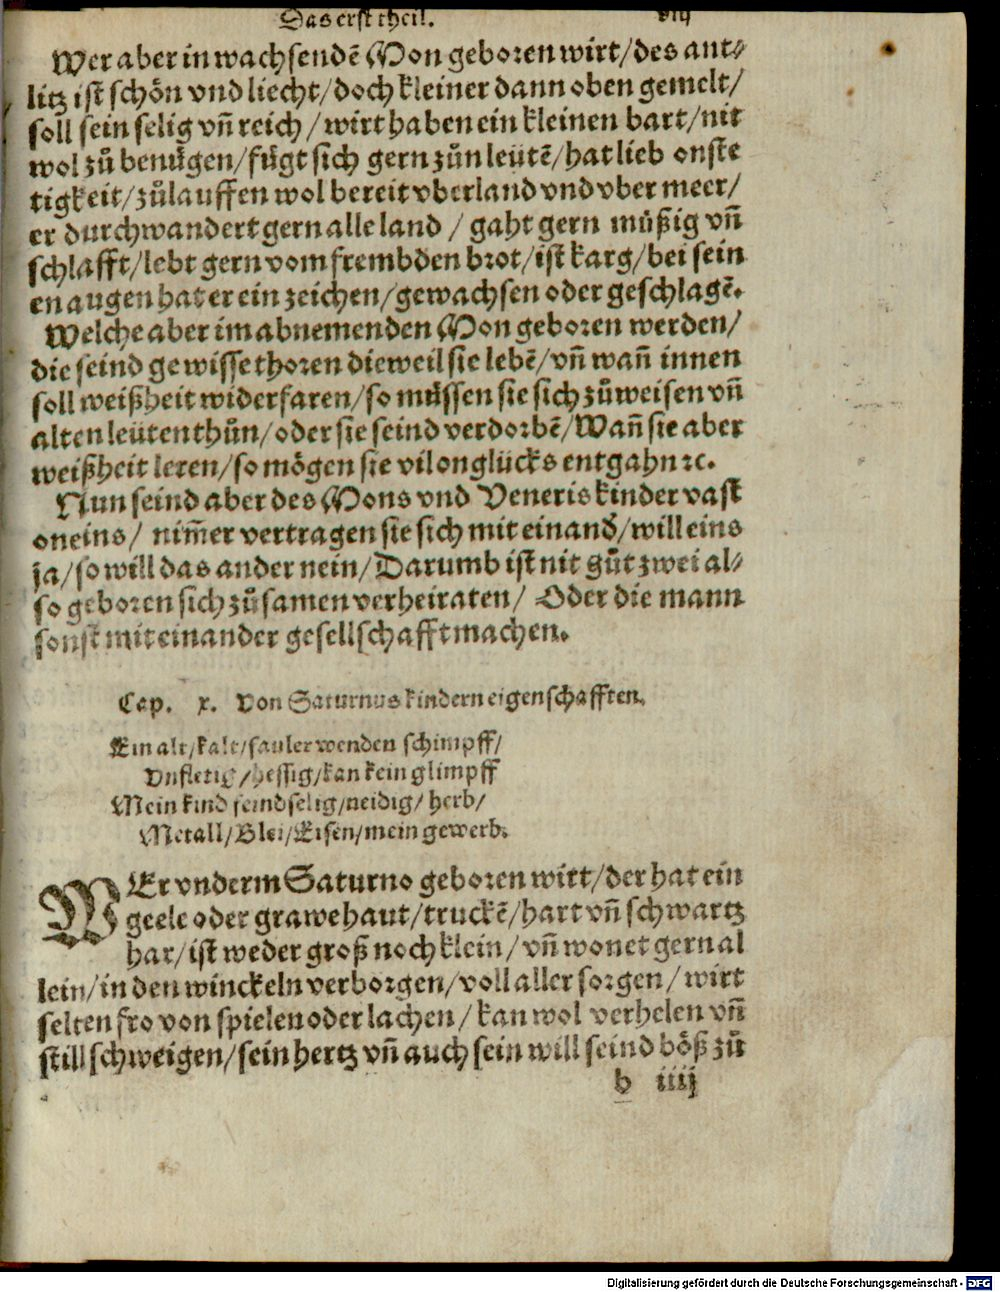 Das erst theil. viij
Wer aber in wachsendē Mon geboren wirt/des ant⸗
litz ist schön vnd liecht/doch kleiner dann oben gemelt/
soll sein selig vñ reich/wirt haben ein kleinen bart/nit
wol zů benůgen/fůgt sich gern zůn leutē/hat lieb onste
tigkeit/zůlauffen wol bereit vber land vnd vber meer/
er durchwandert gern alle land/gaht gern můßig vñ
schlafft/lebt gern vom frembden brot/ist karg/bei sein
en augen hat er ein zeichen/gewachsen oder geschlagē.
Welche aber im abnemenden Mon geboren werden/
die seind gewisse thoren dieweil sie lebē/vñ wañ innen
soll weißheit widerfaren/so müssen sie sich zůweisen vñ
alten leuten thůn/oder sie seind verdorbē/Wañ sie aber
weißheit leren/so mögen sie vil onglücks entgahn ꝛc.
Nun seind aber des Mons vnd Veneris kinder vast
oneins/nim̄er vertragen sie sich mit einand̛/will eins
ja/so will das ander nein/Darumb ist nit gůt zwei al⸗
so geboren sich zůsamen verheiraten/Oder die mann
sonst mit einander gesellschafft machen.
Cap. x. Von Saturnus kindern eigenschafften.
Ein alt/kalt/fauler wenden schimpff/
Vnfletig/hessig/kan kein glimpff
Mein kind feindselig/neidig/herb/
Metall/Blei/Eisen/mein gewerb.
WEr vnderm Saturno geboren wirt/der hat ein
geele oder grawe haut/truckē/hart vñ schwartz
har/ist weder groß noch klein/vñ wonet gern al
lein/in den winckeln verborgen/voll aller sorgen/wirt
selten fro von spielen oder lachen/kan wol verhelen vñ
still schweigen/sein hertz vñ auch sein will seind böß zů
b iiij
Digitalisierung gefördert durch die Deutsche Forschungsgemeinschaft - DFG